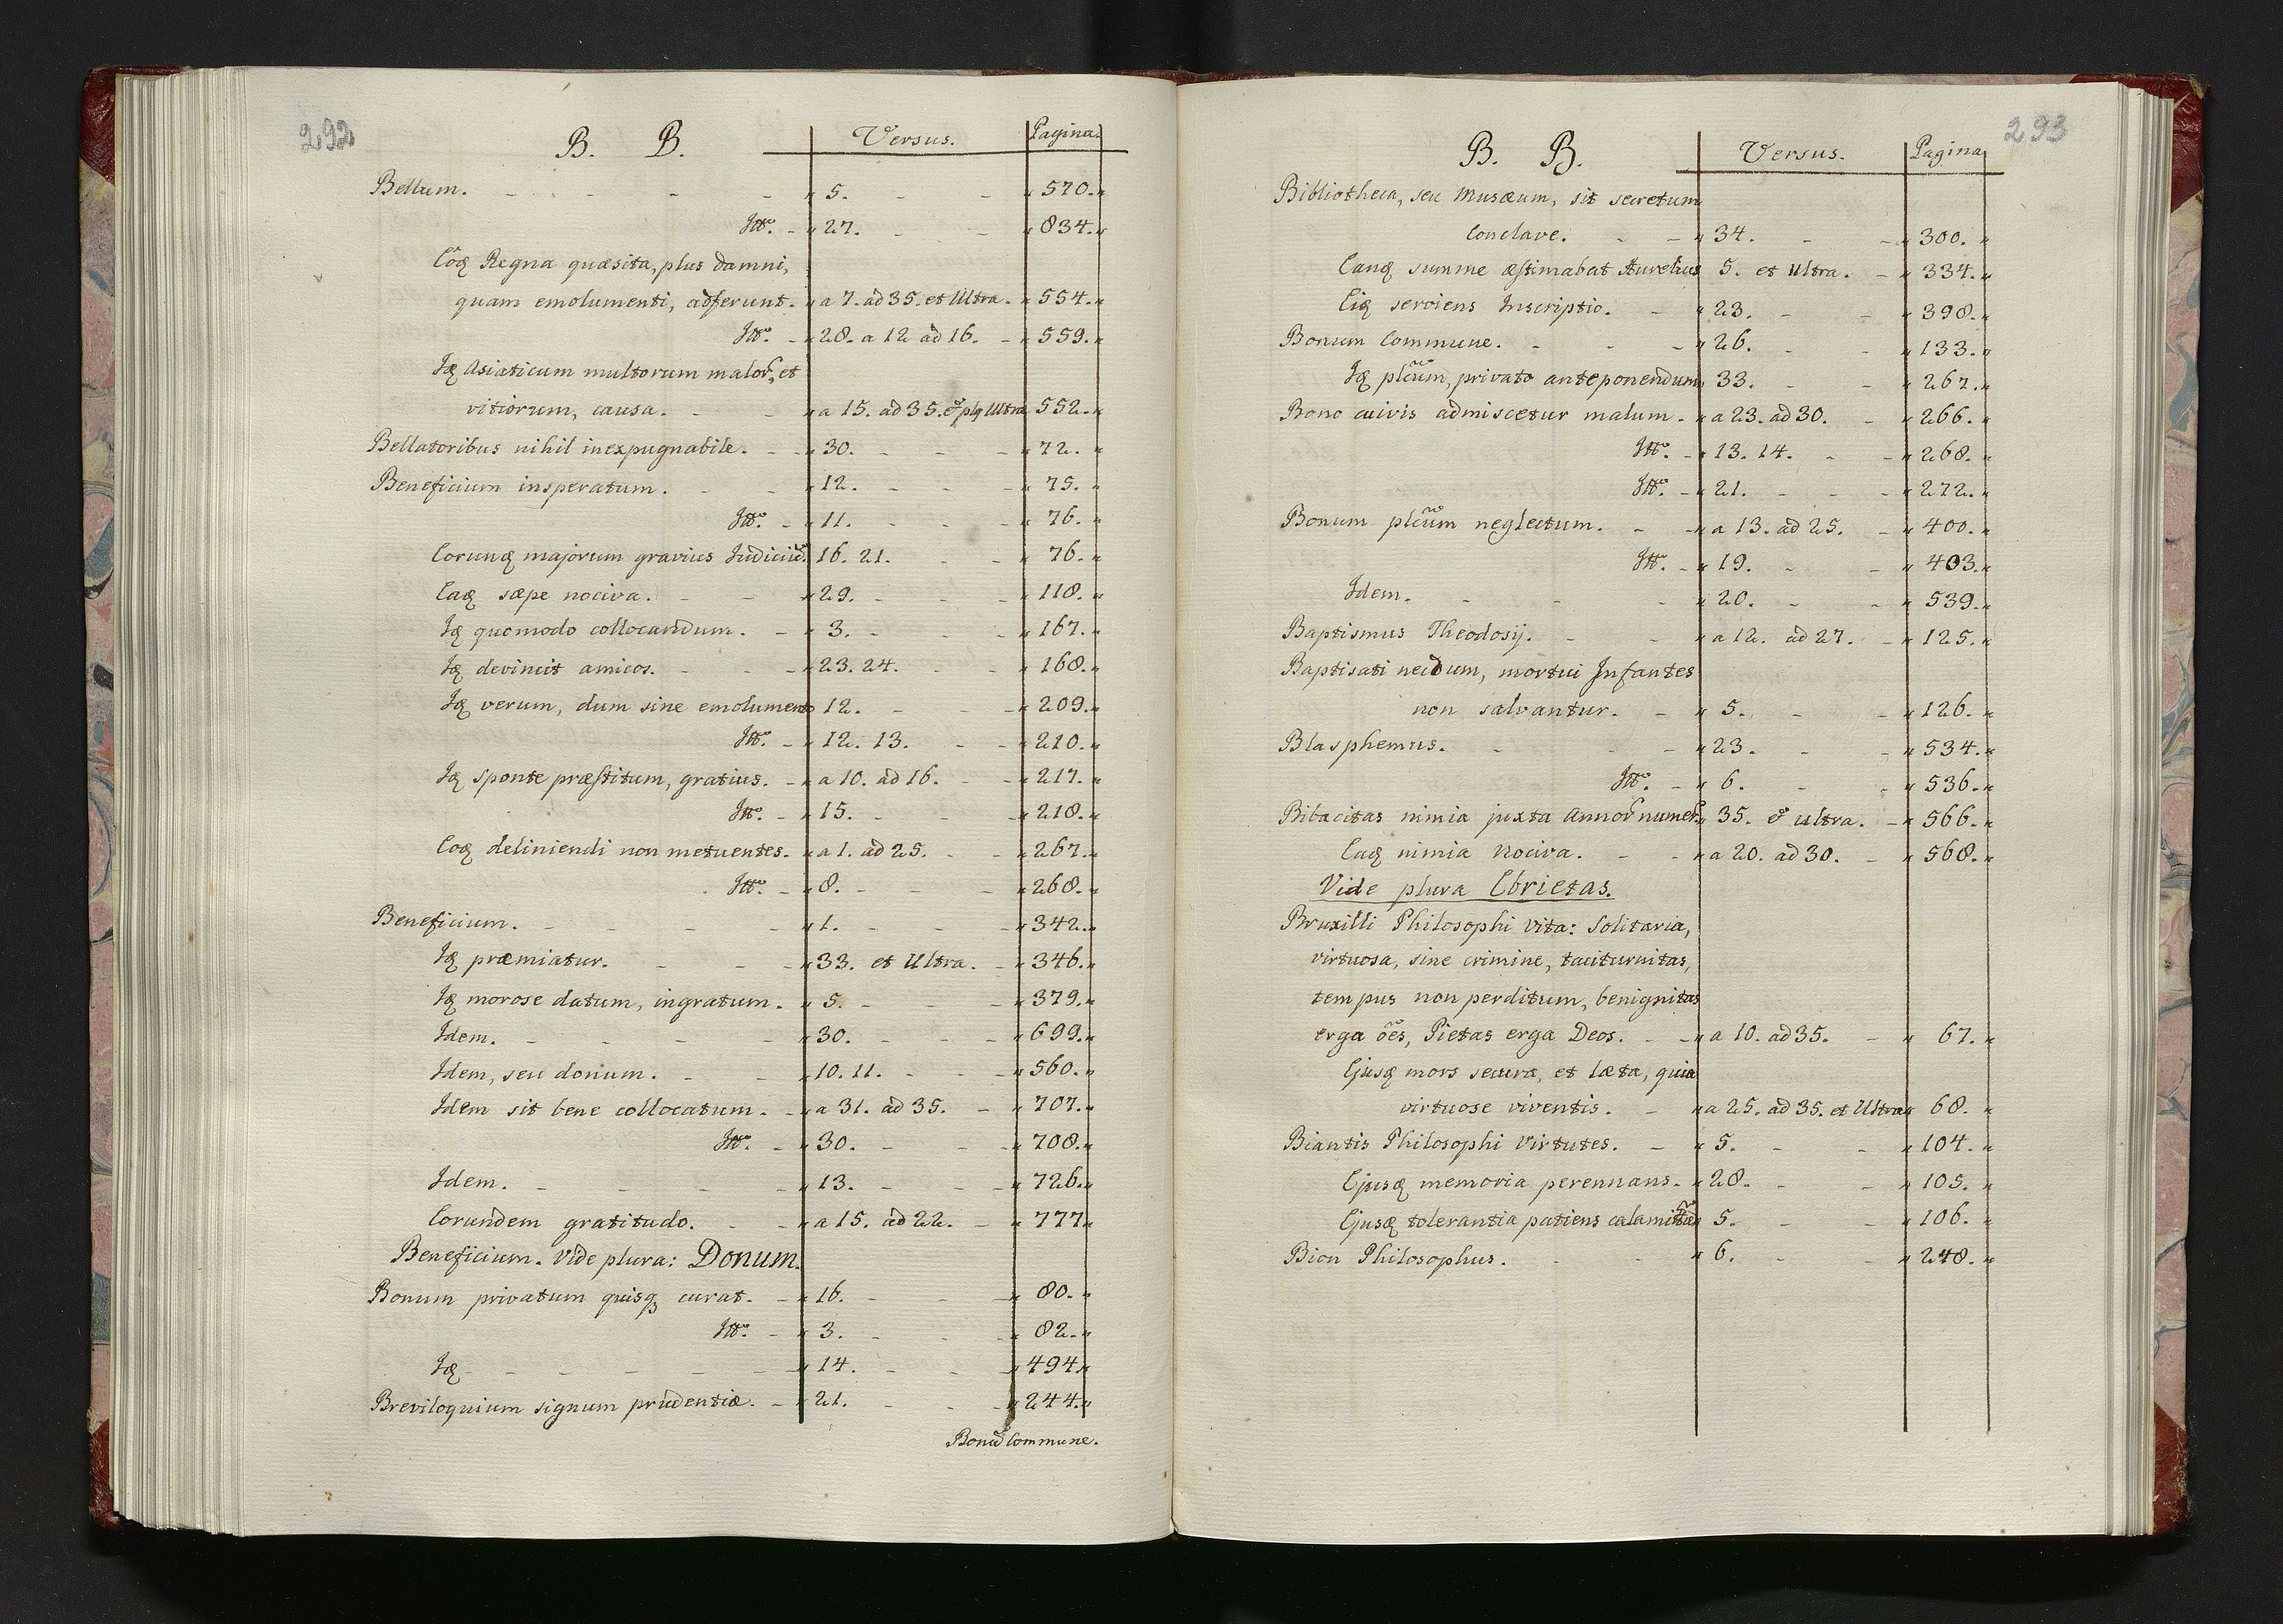 292
B. B. Versus. Pagina.
Bellum. - - - - - „ 5. - - „ 570.„
Itt̃o. - „ 27. - - „ 834.„
Eõq Regna quæsita, plus damni,
quam emolumenti, adferunt. „ a 7. ad 35. et Ultra. „ 554.„
Itt̃o. - „ 28. a 12 ad 16. - „ 559.„
Iq Asiaticum multorum malor, et
vitiorum, causa. - - „ a 15. ad 35. & plq Ultra 552.„
Bellatoribus nihil inexpugnabile. - „ 30. - - - „ 72. „
Beneficium insperatum. - - „ 12. - - - „ 75. „
Itt̃o. - „ 11. - - - „ 76. „
Eorunq majorum gravius Iudiciũ. 16. 21. - - „ 76. „
Eaq sæpe nociva. - - „ 29. - - „ 118. „
Iq quomodo collocandum. - „ 3. - - - „ 167. „
Iq devincit amicos. - - - „ 23. 24. - - „ 168. „
Iq verum, dum sine emolumento 12. - - „ 209.„
Itt̃o. - „ 12. 13. - - „ 210.„
Iq sponte præstitum, gratius. - „ a 10. ad 16. - „ 217. „
Itt̃o. - „ 15. - - - „ 218.„
Eoq deliniendi non metuentes. „ a 1. ad 25. - - „ 267.„
Itt̃o. - „ 8. - - - „ 268.„
Beneficium. - - - - „ 1. - - - „ 342.„
Iq præmiatur. - - - „ 33. et Ultra. - „ 346.„
Iq morose datum, ingratum. „ 5. - - - „ 379.„
Idem. - - - - „ 30. - - - „ 699.„
Idem, seu donum. - - „ 10. 11. - - - „ 560.„
Idem sit bene collocatum. - „ a 31. ad 35. - „ 707.„
Itt̃o. - „ 30. - - - „ 708.„
Idem. - - - - „ 13. - - - „ 726.„
Eorundem gratitudo. - - „ a 15. ad 22. - „ 777„
Beneficium. Vide plura: Donum.
Bonum privatum quisq curat. - „ 16. - - - „ 80. „
Itt̃o. - „ 3. - - - „ 82.„
Iq - - - - - „ 14. - - „ 494.„
Breviloquium signum prudentiæ. - „ 21. - - - „ 244.„
Bonũ Commune.
293
B. B. Versus. Pagina
Bibliotheca, seu Musæum, sit secretum
Conclave. - - „ 34. - - „ 300. „
Eanq summe æstimabat Aurelius 5. et Ultra. - „ 334.„
Eiq serviens Inscriptio. - „ 23. - - „ 398.„
Bonum Commune. - - - „ 26. - - „ 133.„
Iq plcũm, privato anteponendum „ 33. - - „ 267.„
Bono cuivis admiscetur malum. „ a 23. ad 30. - „ 266. „
Itt̃o. - „ 13. 14. - - „ 268. „
Itt̃o. - „ 21. - - - „ 272.„
Bonum plcũm neglectum. - - „ a 13. ad 25. - „ 400. „
Itt̃o. - „ 19. - - „ 403.„
Idem. - - - „ 20. - - „ 539.„
Baptismus Theodosij. - - „ a 12. ad 27. - „ 125.„
Baptisati necdum, mortui Infantes
non salvantur. - „ 5. - - „ 126. „
Blasphemus. - - - „ 23. - - „ 534.„
Itt̃o. - „ 6. - - „ 536.„
Bibacitas nimia juxta Annor numer. „ 35. & ultra. - „ 566. „
Eaq nimia Nociva. - - „ a 20. ad 30. - „ 568.„
Vide plura Ebrietas.
Bruxilli Philosophi Vita: Solitaria,
virtuosa, sine crimine, taciturnitas,
tempus non perditum, benignitas
erga õẽs, Pietas erga Deos. - „ a 10. ad 35. - „ 67. „
Ejusq mors secura, et læta, quia
virtuose viventis. - „ a 25. ad 35. et Ultra „ 68. „
Biantis Philosophi Virtutes. - „ 5. - - „ 104. „
Ejusq memoria perennans. „ 28. - - „ 105. „
Ejusq tolerantia patiens calamitatũ 5. - - „ 106. „
Bion Philosophus. - - „ 6. - - „ 248. „